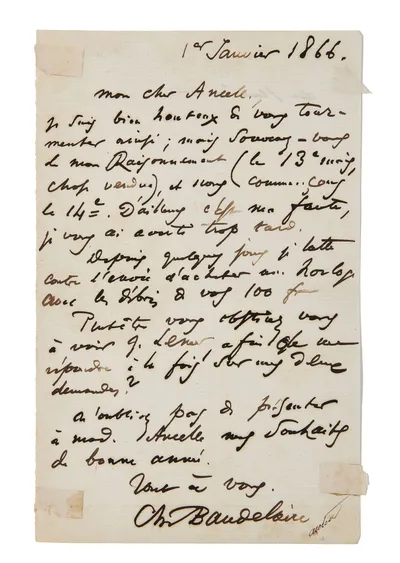 1er Janvier 1866.
mon cher Ancelle,
je suis bien honteux de vous tour-
menter ainsi ; mais souvenez-vous
de mon Raisonnement (le 13e mois,
chose vendue), et nous commençons
le 14e. D'ailleurs c'est ma faute,
je vous ai averti trop tard.
Depuis quelques jours je lutte
contre l'envie d'acheter une horloge
avec les débris de vos 100 fr
Peut-être vous
à voir Lemer afin de me
répondre à la fois sur mes deux
demandes ?
n'oubliez pas de présenter
à mad. Ancelle mes souhaits
de bonne année.
Tout à vous.
Ch. Baudelaire